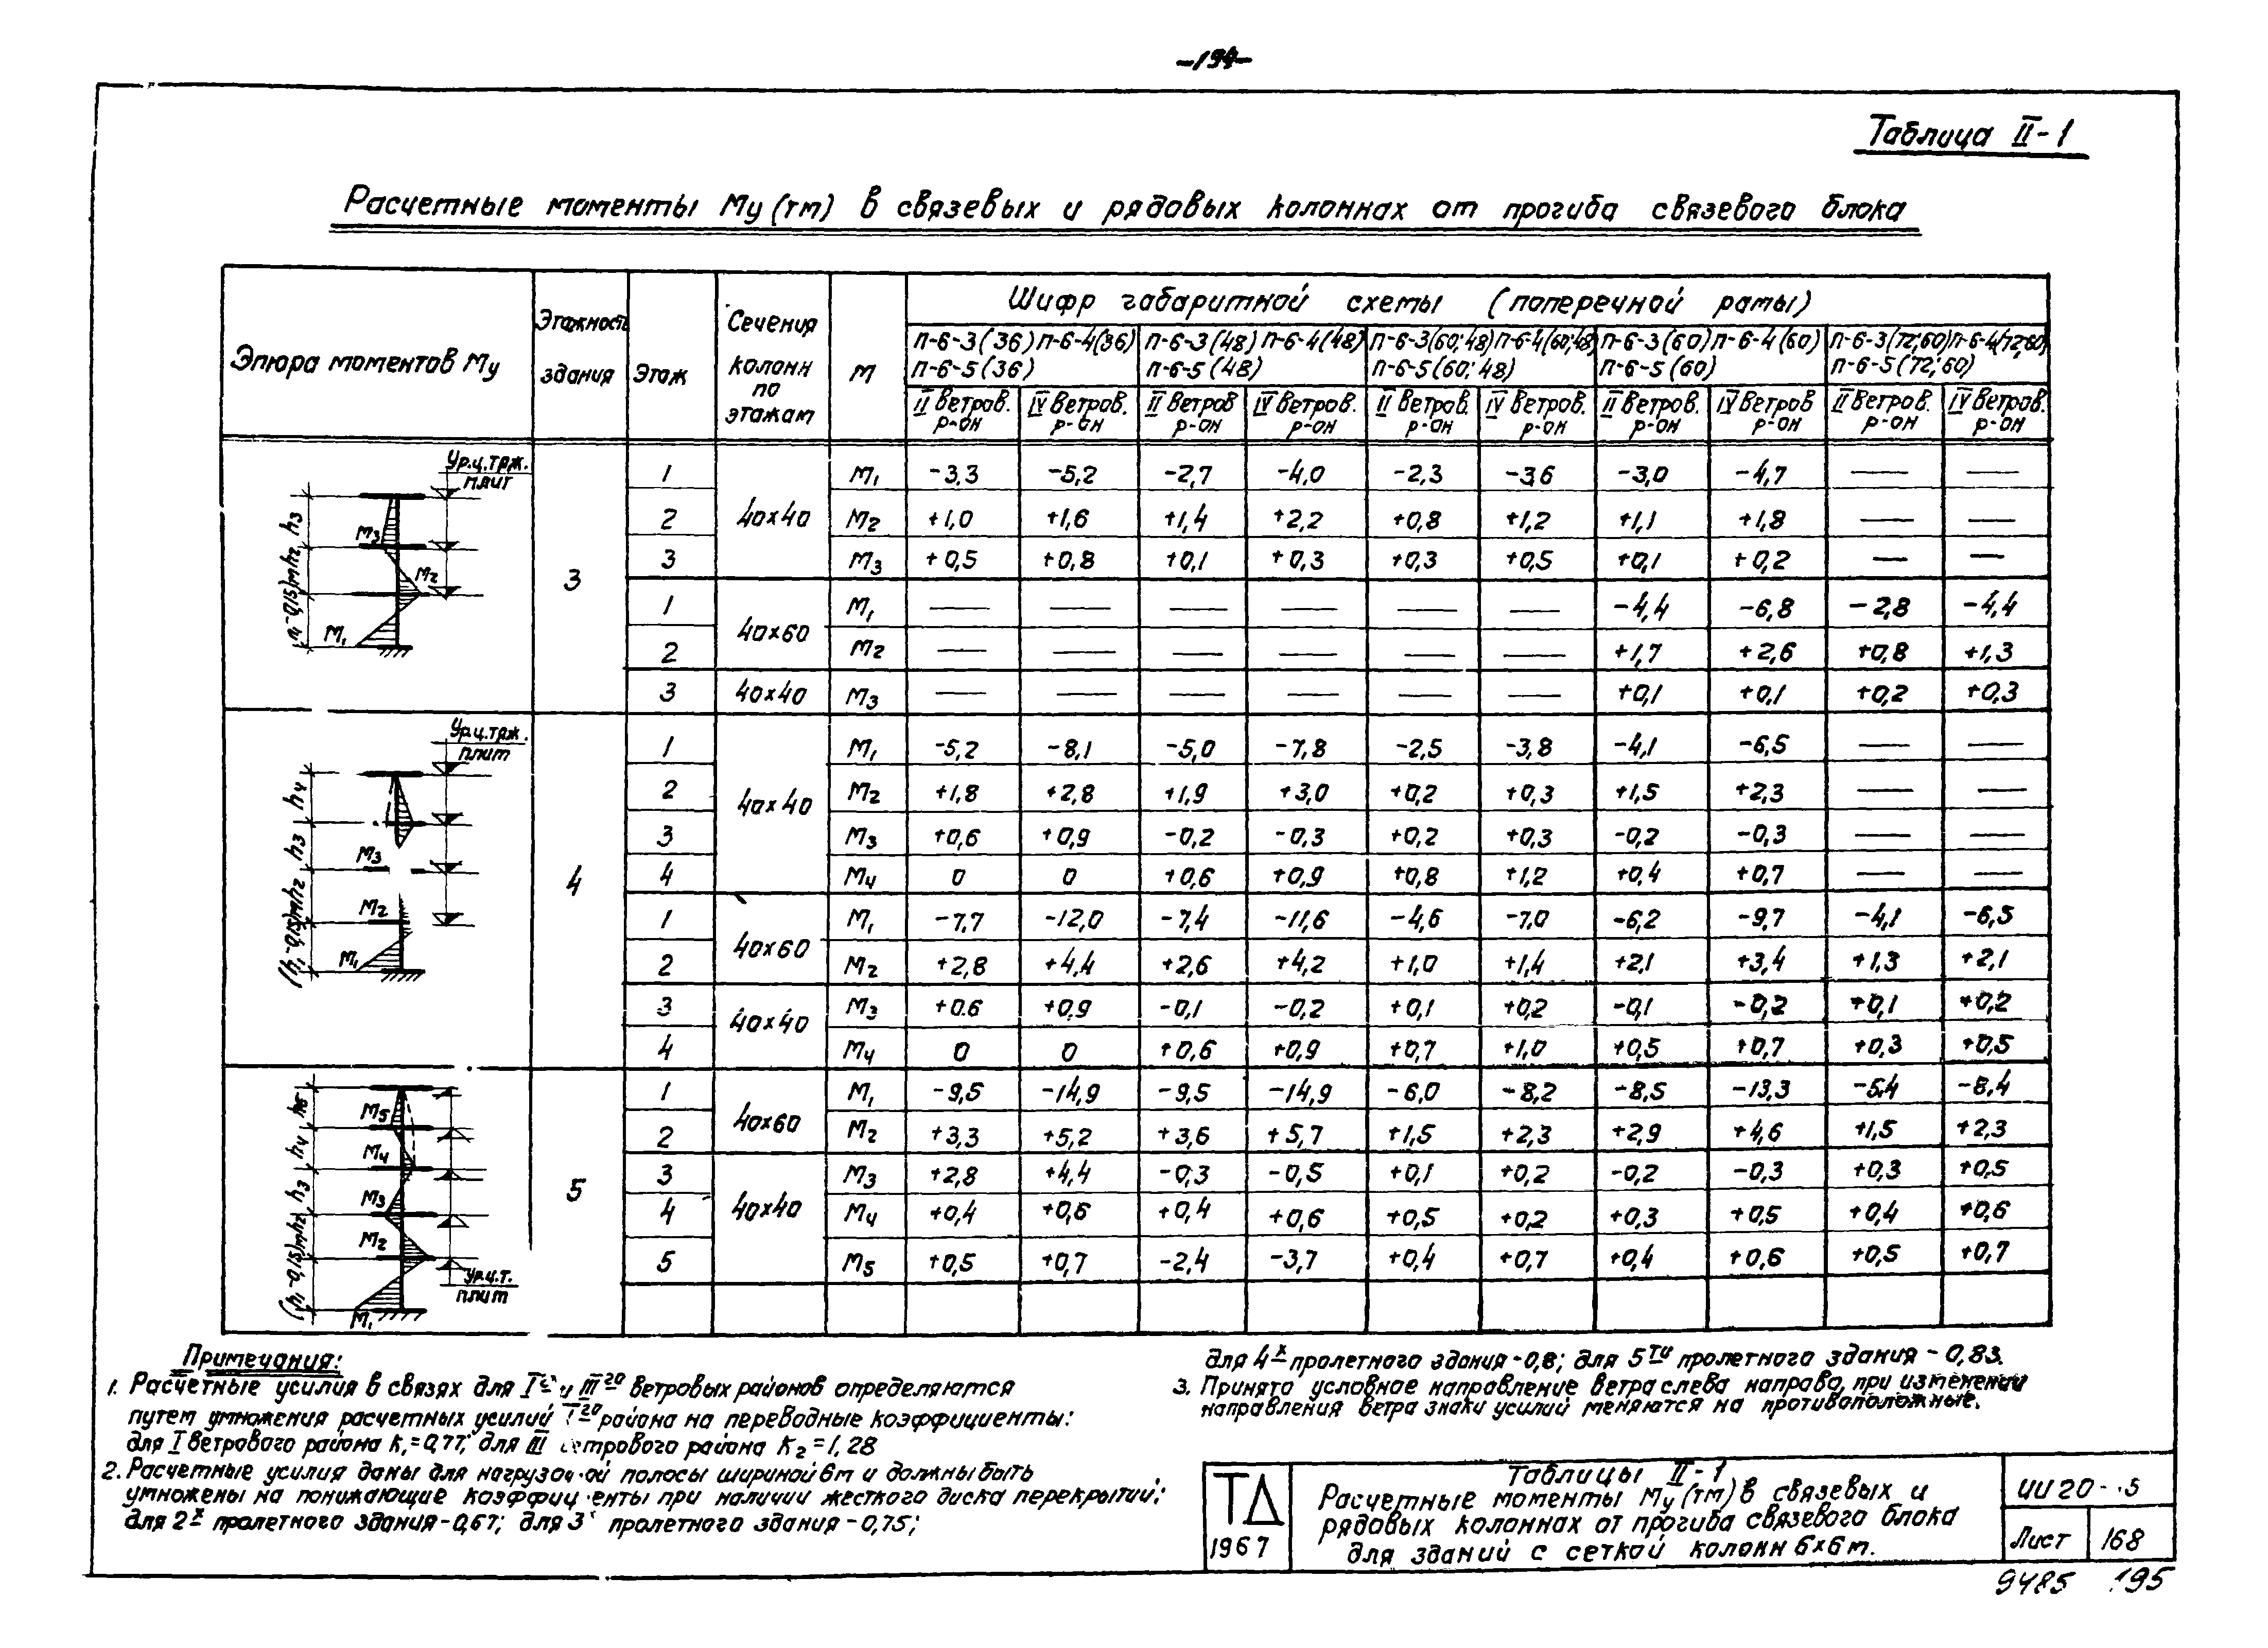 -194-
Таблица II-1
Расчетные моменты Му (тм) в связевых и рядовых колоннах от прогиба связевого блока
Эпюра моментов Му
Этажность здания
Этаж
Сечения колонн по этажам
М
Шифр габаритной схемы (поперечной рамы)
п-6-3(36) п-6-4(36) п-6-5(36)
п-6-3(48) п-6-4(48) п-6-5(48)
п-6-3(60;48) п-6-4(60;48) п-6-5(60;48)
п-6-3(60) п-6-4(60) п-6-5(60)
п-6-3(72;60) п-6-4(72;60) п-6-5(72;60)
II Ветров. р-он IV Ветров. р-он II Ветров р-он IV Ветров. р-он II Ветров. р-он IV Ветров. р-он II Ветров. р-он IV Ветров р-он II Ветров. р-он IV Ветров. р-он
Ур.ц.тяж. плит
h3
М3
М2
М1
3
40х40
1 М1 -3,3 -5,2 -2,7 -4,0 -2,3 -3,6 -3,0 -4,7 — —
2 М2 +1,0 +1,6 +1,4 +2,2 +0,8 +1,2 +1,1 +1,8 — —
3 М3 +0,5 +0,8 +0,1 +0,3 +0,3 +0,5 +0,1 +0,2 — —
40х60
1 М1 — — — — — — -4,4 -6,8 -2,8 -4,4
2 М2 — — — — — — +1,7 +2,6 +0,8 +1,3
3 40х40 М3 — — — — — — +0,1 +0,1 +0,2 +0,3
Ур.ц.тяж. плит
(h1-0,15)м h2 h3 h4
М3
М2
М1
4
40х40
1 М1 -5,2 -8,1 -5,0 -7,8 -2,5 -3,8 -4,1 -6,5 — —
2 М2 +1,8 +2,8 +1,9 +3,0 +0,2 +0,3 +1,5 +2,3 — —
3 М3 +0,6 +0,9 -0,2 -0,3 +0,2 +0,3 -0,2 -0,3 — —
4 М4 0 0 +0,6 +0,9 +0,8 +1,2 +0,4 +0,7 — —
40х60
1 М1 -7,7 -12,0 -7,4 -11,6 -4,6 -7,0 -6,2 -9,7 -4,1 -6,5
2 М2 +2,8 +4,4 +2,6 +4,2 +1,0 +1,4 +2,1 +3,4 +1,3 +2,1
40х40
3 М3 +0.6 +0,9 -0,1 -0,2 +0,1 +0,2 -0,1 -0,2 +0,1 +0,2
4 М4 0 0 +0,6 +0,9 +0,7 +1,0 +0,5 +0,7 +0,3 +0,5
(h1-0,15)м h2 h3 h4 h5
М5
М4
М3
М2
М1
Ур.ц.т. плит
5
40х60
1 М1 -9,5 -14,9 -9,5 -14,9 -6,0 -8,2 -8,5 -13,3 -5,4 -8,4
2 М2 +3,3 +5,2 +3,6 +5,7 +1,5 +2,3 +2,9 +4,6 +1,5 +2,3
40х40
3 М3 +2,8 +4,4 -0,3 -0,5 +0,1 +0,2 -0,2 -0,3 +0,3 +0,5
4 М4 +0,4 +0,6 +0,4 +0,6 +0,5 +0,2 +0,3 +0,5 +0,4 +0,6
5 М5 +0,5 +0,7 -2,4 -3,7 +0,4 +0,7 +0,4 +0,6 +0,5 +0,7
Примечания:
1. Расчетные усилия в связях для I и III го ветровых районов определяются
путем умножения расчетных усилий района на переводные коэффициенты:
для I ветрового района К1=0,77; для III ветрового района К2=1,28
2. Расчетные усилия даны для нагрузочной полосы шириной 6м и должны быть
умножены на понижающие коэффициенты при наличии жесткого диска перекрытий:
для 2х пролетного здания-0,67; для 3х пролетного здания-0,75;
для 4х пролетного здания-0,8; для 5ти пролетного здания-0,83.
3. Принято условное направление ветра слева направо, при изменении
направления ветра знаки усилий меняются на противоположные.
ТД
1967
Таблицы II-1
Расчетные моменты Му (тм) в связевых и
рядовых колоннах от прогиба связевого блока
для зданий с сеткой колонн 6х6м.
ИИ20- 5
Лист 168
9485 195